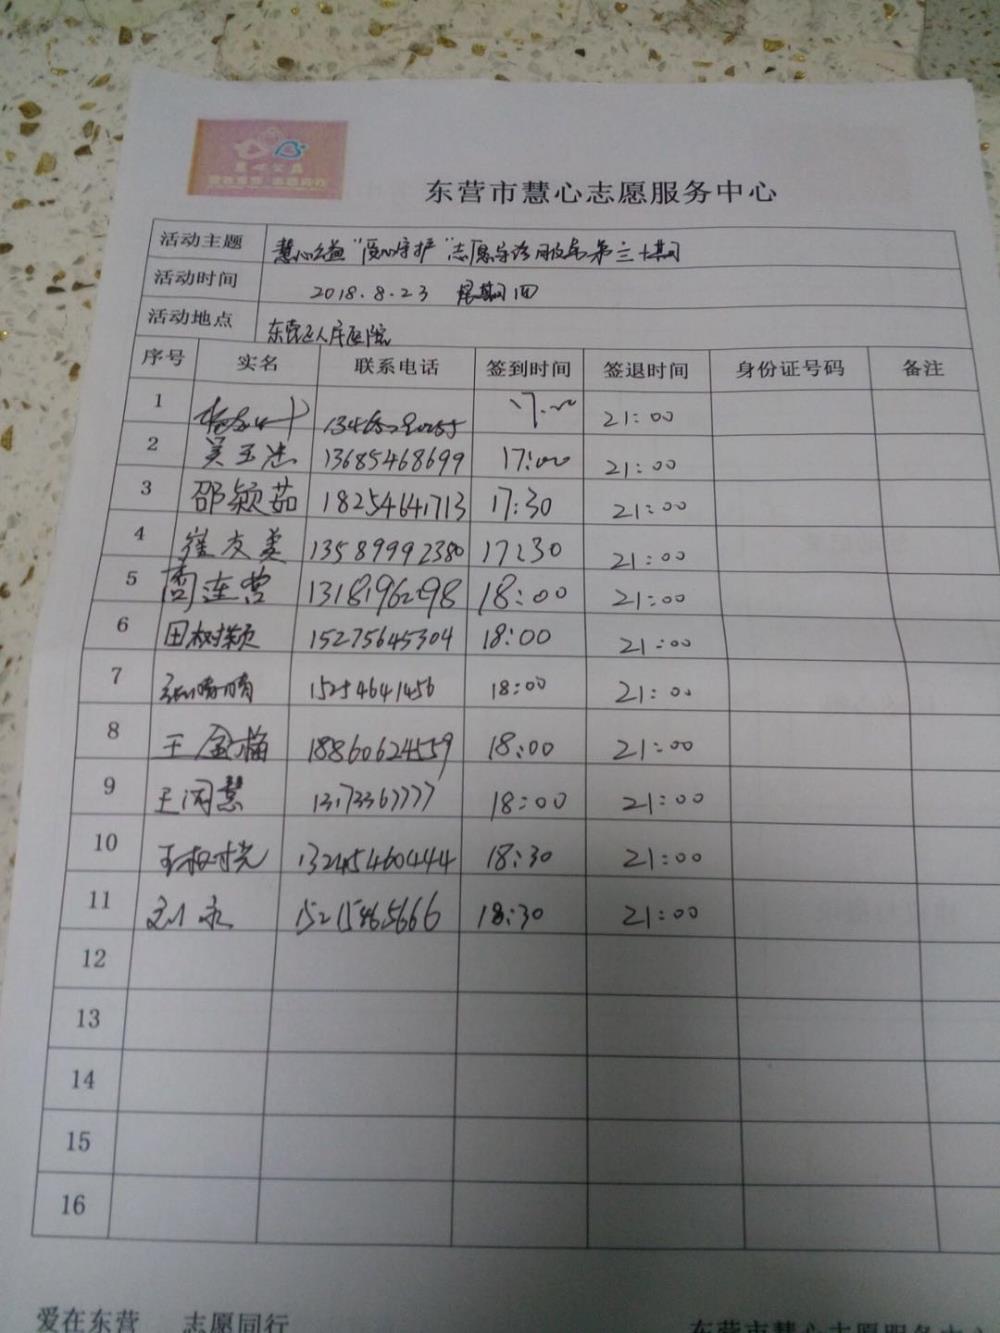 东营市慧心志愿服务中心
活动主题 慧心公益"爱心守护"志愿导诊服务第三十期
活动时间 2018.8.23 星期四
活动地点 东营区人民医院
序号 实名 联系电话 签到时间 签退时间 身份证号码 备注
1 17:00 21:00
2 吴玉杰 13685468699 17:00 21:00
3 邵颖茹 18254641713 17:30 21:00
4 崔友美 13589992380 17:30 21:00
5 周连营 1318196298 18:00 21:00
6 田树颖 15275645304 18:00 21:00
7 15254641456 18:00 21:00
8 王金梅 18860624559 18:00 21:00
9 王闰慧 18:00 21:00
10 13245460444 18:30 21:00
11 刘永 15215465666 18:30 21:00
12
13
14
15
16
爱在东营 志愿同行 东营市慧心志愿服务中心